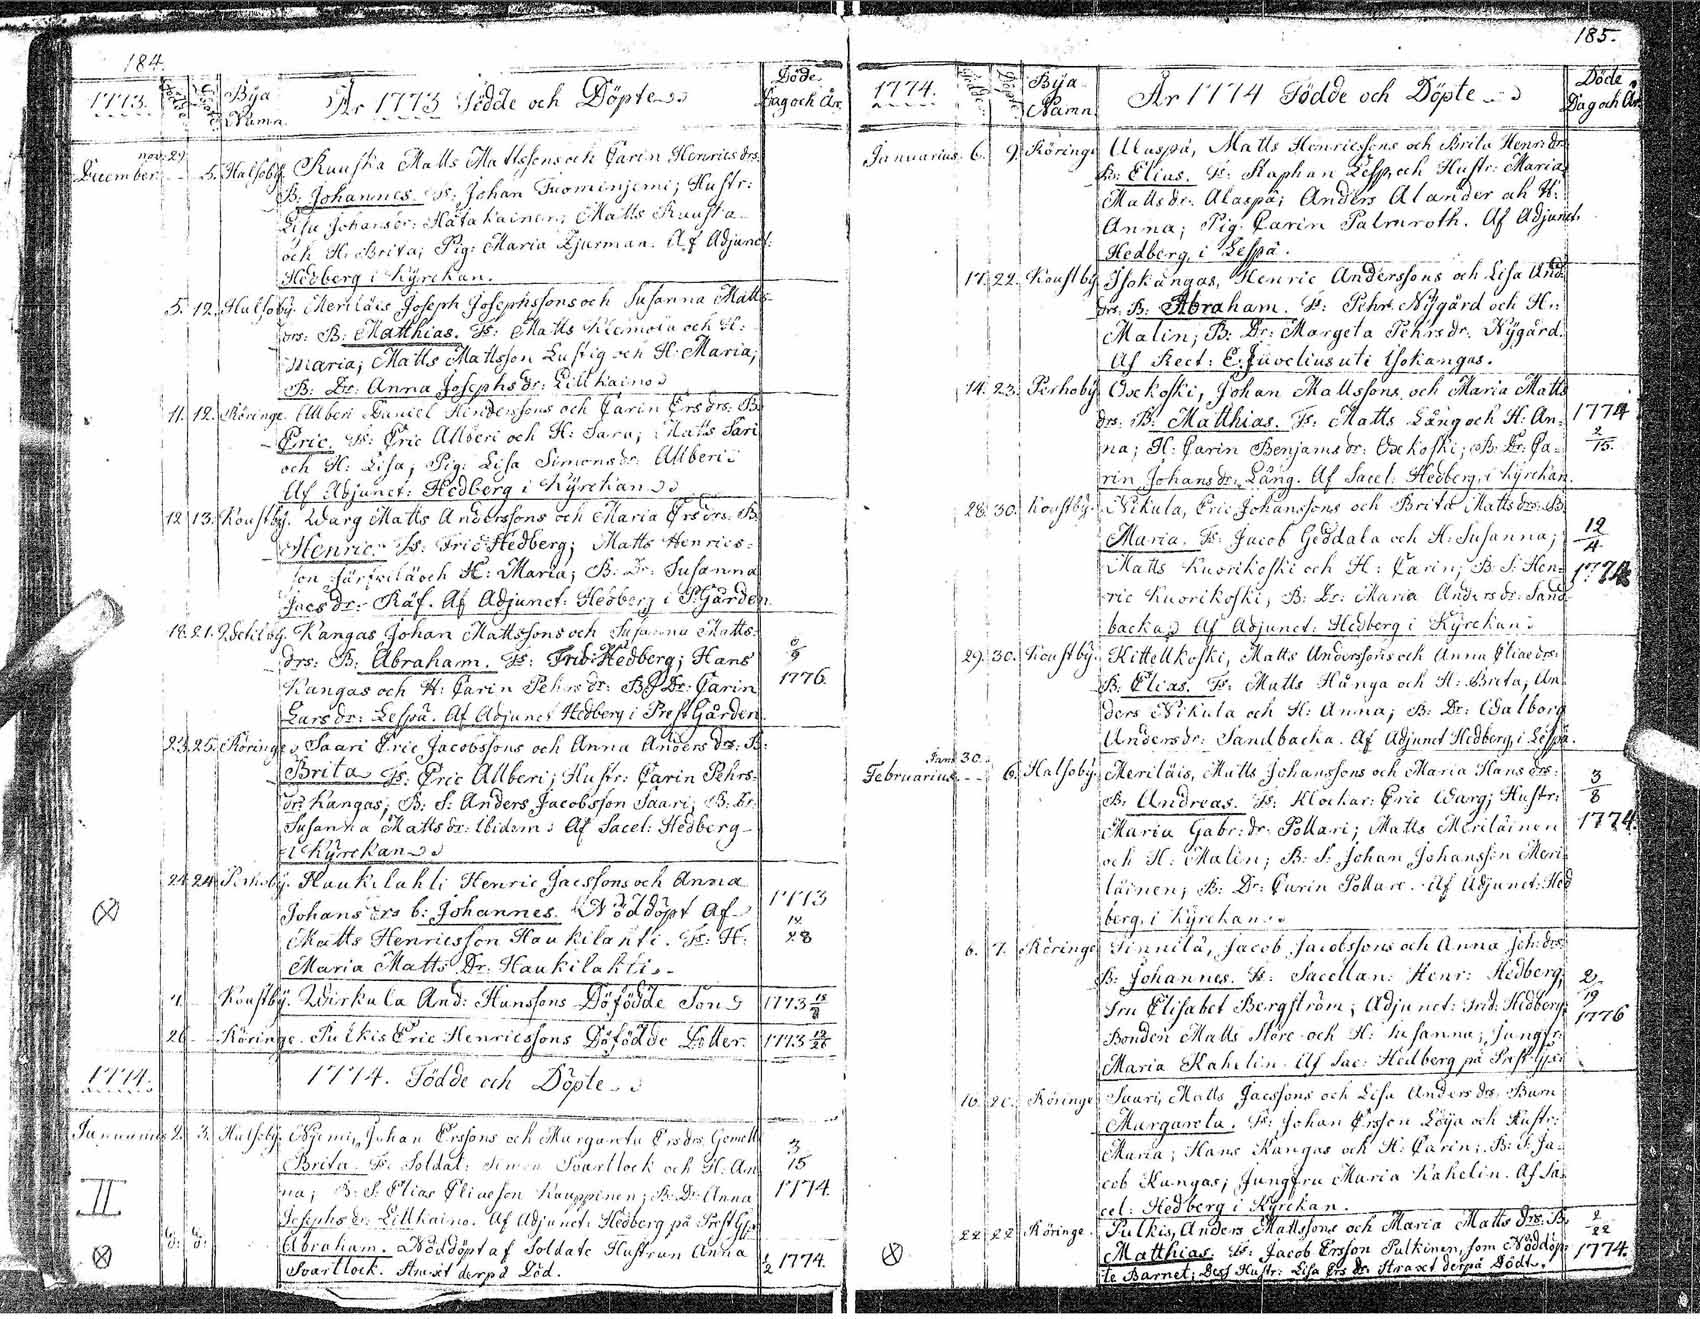 184.
1773.
Bÿa Namn.
År 1773 Födde och Döpte
Döde Dag och År.
nov. 29.
December 5. Halsobÿ. Ruuska Matts Mattssons och Carin Henrics drs.
B: Johannes. Fs: Johan Tuominjemi; Hustr:
Lisa Johans dr: Hätakainen; Matts Ruuska
och H: Brita; Pig: Maria Djurman. Af Adjunct:
Hedberg i Kÿrckan.
5. 12. Halsobÿ. Meriläis Joseph Josephssons och Susanna Matts
drs: B: Matthias. Fs: Matts Kiemola och H:
Maria; Matts Mattsson Lustig och H: Maria;
B: Dr: Anna Josephs dr: Lillkaino
11. 12. Röringe. Allberi Daniel Hinderssons och Carin Ers drs: B:
Eric. Fs: Eric Allberi och H: Sara; Matts Sari
och H: Lisa; Pig: Lisa Simons dr: Allberi
Af Adjunct: Hedberg i Kÿrckan
12. 13. Koustbÿ. Warg Matts Anderssons och Maria Ers drs: B:
Henric. Fs: Fric: Hedberg; Matts Henrics-
son Järfvilä och H: Maria; B: Dr: Susanna
Jacs dr: Räf. Af Adjunct: Hedberg i P:Gården
18. 21. Kangas Johan Mattssons och Susanna Matts
drs: B: Abraham. Fs: Frid: Hedberg; Hans
Kangas och H: Carin Pehrs dr: B: Dr: Carin
Lars dr: Lespä. Af Adjunct Hedberg i PrestGården
9
1776.
23. 25. Röringe. Saari Eric Jacobssons och Anna Anders drs: B:
Brita Fs: Eric Allberi; Hustr: Carin Pehrs-
dr: Kangas; B: S: Anders Jacobsson Saari; B: Dr:
Susanna Matts dr: Ibidem: Af Sacel: Hedberg
i Kÿrckan
24. 24. Perhobÿ. Haukilahti Henric Jacssons och Anna
Johans drs b: Johannes. Nöddöpt Af
Matts Henricsson Haukilahti. Fs: H:
Maria Matts Dr: Haukilahti.
1773
12
28
Koustbÿ. Wirkula And: Hanssons Döfödde Son 1773
26 Röringe. Pulkis Eric Henricssons Döfödde Dotter. 1773 12/26
1774. 1774. Födde och Döpte
Januarius 2. 3. Halsobÿ. Niemi, Johan Erssons och Margareta Ers drs. Gemell:
Brita. Fs: Soldat: Simon Svartlock och H: An
na; B: S: Elias Eliasson Kauppinen; B: Dr: Anna
Josephs dr: Lillkaino. Af Adjunct: Hedberg på PrestGå:
3
15
1774.
II
d: d: Abraham. Nöddöpt af Soldate Hustrun Anna
Svartlock. Straxt derpå Död.
1774.
185.
1774.
Bÿa Namn
År 1774 Födde och Döpte
Döde Dag och År
Januarius 6. 9. Röringe Alaspä, Matts Henricssons och Brita Henrs dr:
B: Elias. Fs: Staphan Lespä och Hustr: Maria
Matts dr: Alaspä; Anders Alander och H:
Anna; Pig: Carin Palmroth. Af Adjunct
Hedberg i Lespä.
17. 22. Koustbÿ. Isokangas, Henric Anderssons och Lisa And:
drs: B: Abraham. Fs: Pehr Nÿgård och H:
Malin; B: Dr: Margeta Pehrs dr: Nÿgård.
Af Rect: E: Juvelius uti Isokangas.
14. 23. Perhobÿ. Oxekoski, Johan Mattssons och Maria Matts
drs: B: Matthias. Fs: Matts Lång och H: An-
na; H: Carin Benjams dr: Oxekoski; B: Dr: Ca-
rin Johans dr: Lång. Af Sacel: Hedberg, i Kÿrckan.
1774
2
15.
28. 30. Koustbÿ. Nikula, Eric Johanssons och Brita Matts drs: B:
Maria. Fs: Jacob Geddala och H: Susanna;
Matts Kuorikoski och H: Carin; B: S: Hen-
ric Kuorikoski, B: Dr: Maria Anders dr: Sand-
backa Af Adjunct: Hedberg i Kÿrckan
12
4
1774
29. 30. Koustbÿ. Kittelkoski, Matts Anderssons och Anna Elias drs:
B: Elias. Fs: Matts Hånga och H: Brita, An
ders Nikula och H: Anna; B: Dr: Walborg
Anders dr: Sandbacka. Af Adjunct Hedberg, i Lespä.
Jan: 30.
Februarius 6. Halsobÿ. Meriläis, Matts Johanssons och Maria Hans drs:
B: Andreas. Fs: Klockar: Eric Warg; Hustr:
Maria Gabr: dr: Pollari; Matts Meriläinen
och H: Malin; B: S: Johan Johansson Meri
läinen; B: Dr: Carin Pollare. Af Adjunct: Hed
berg, i Kÿrckan
3
8
1774.
6. 7. Röringe Sinnilä, Jacob Jacobssons och Anna Joh: drs:
B: Johannes. Fs: Sacellan: Henr: Hedberg,
Fru Elisabet Bergström; Adjunct: Frid: Hedberg;
Bonden Matts Store och H: Susanna; Jungfr:
Maria Kahelin. Af Sac: Hedberg på PrestG:
2
19
1776
16. 20. Röringe Saari, Matts Jacssons och Lisa Anders drs: Barn
Margareta. Fs: Johan Ersson Löÿa och Hustr:
Maria; Hans Kangas och H: Carin; B: S: Ja-
cob Kangas; Jungfru Maria Kahelin. Af Sa-
cel: Hedberg i Kÿrckan.
22 22 Röringe. Pulkis, Anders Mattssons och Maria Matts drs: B:
Matthias. Fs: Jacob Ersson Pulkinen, som Nöddöp-
te Barnet; Dess Hustr: Lisa Ers dr: Straxt derpå Dödt.
2
22
1774.